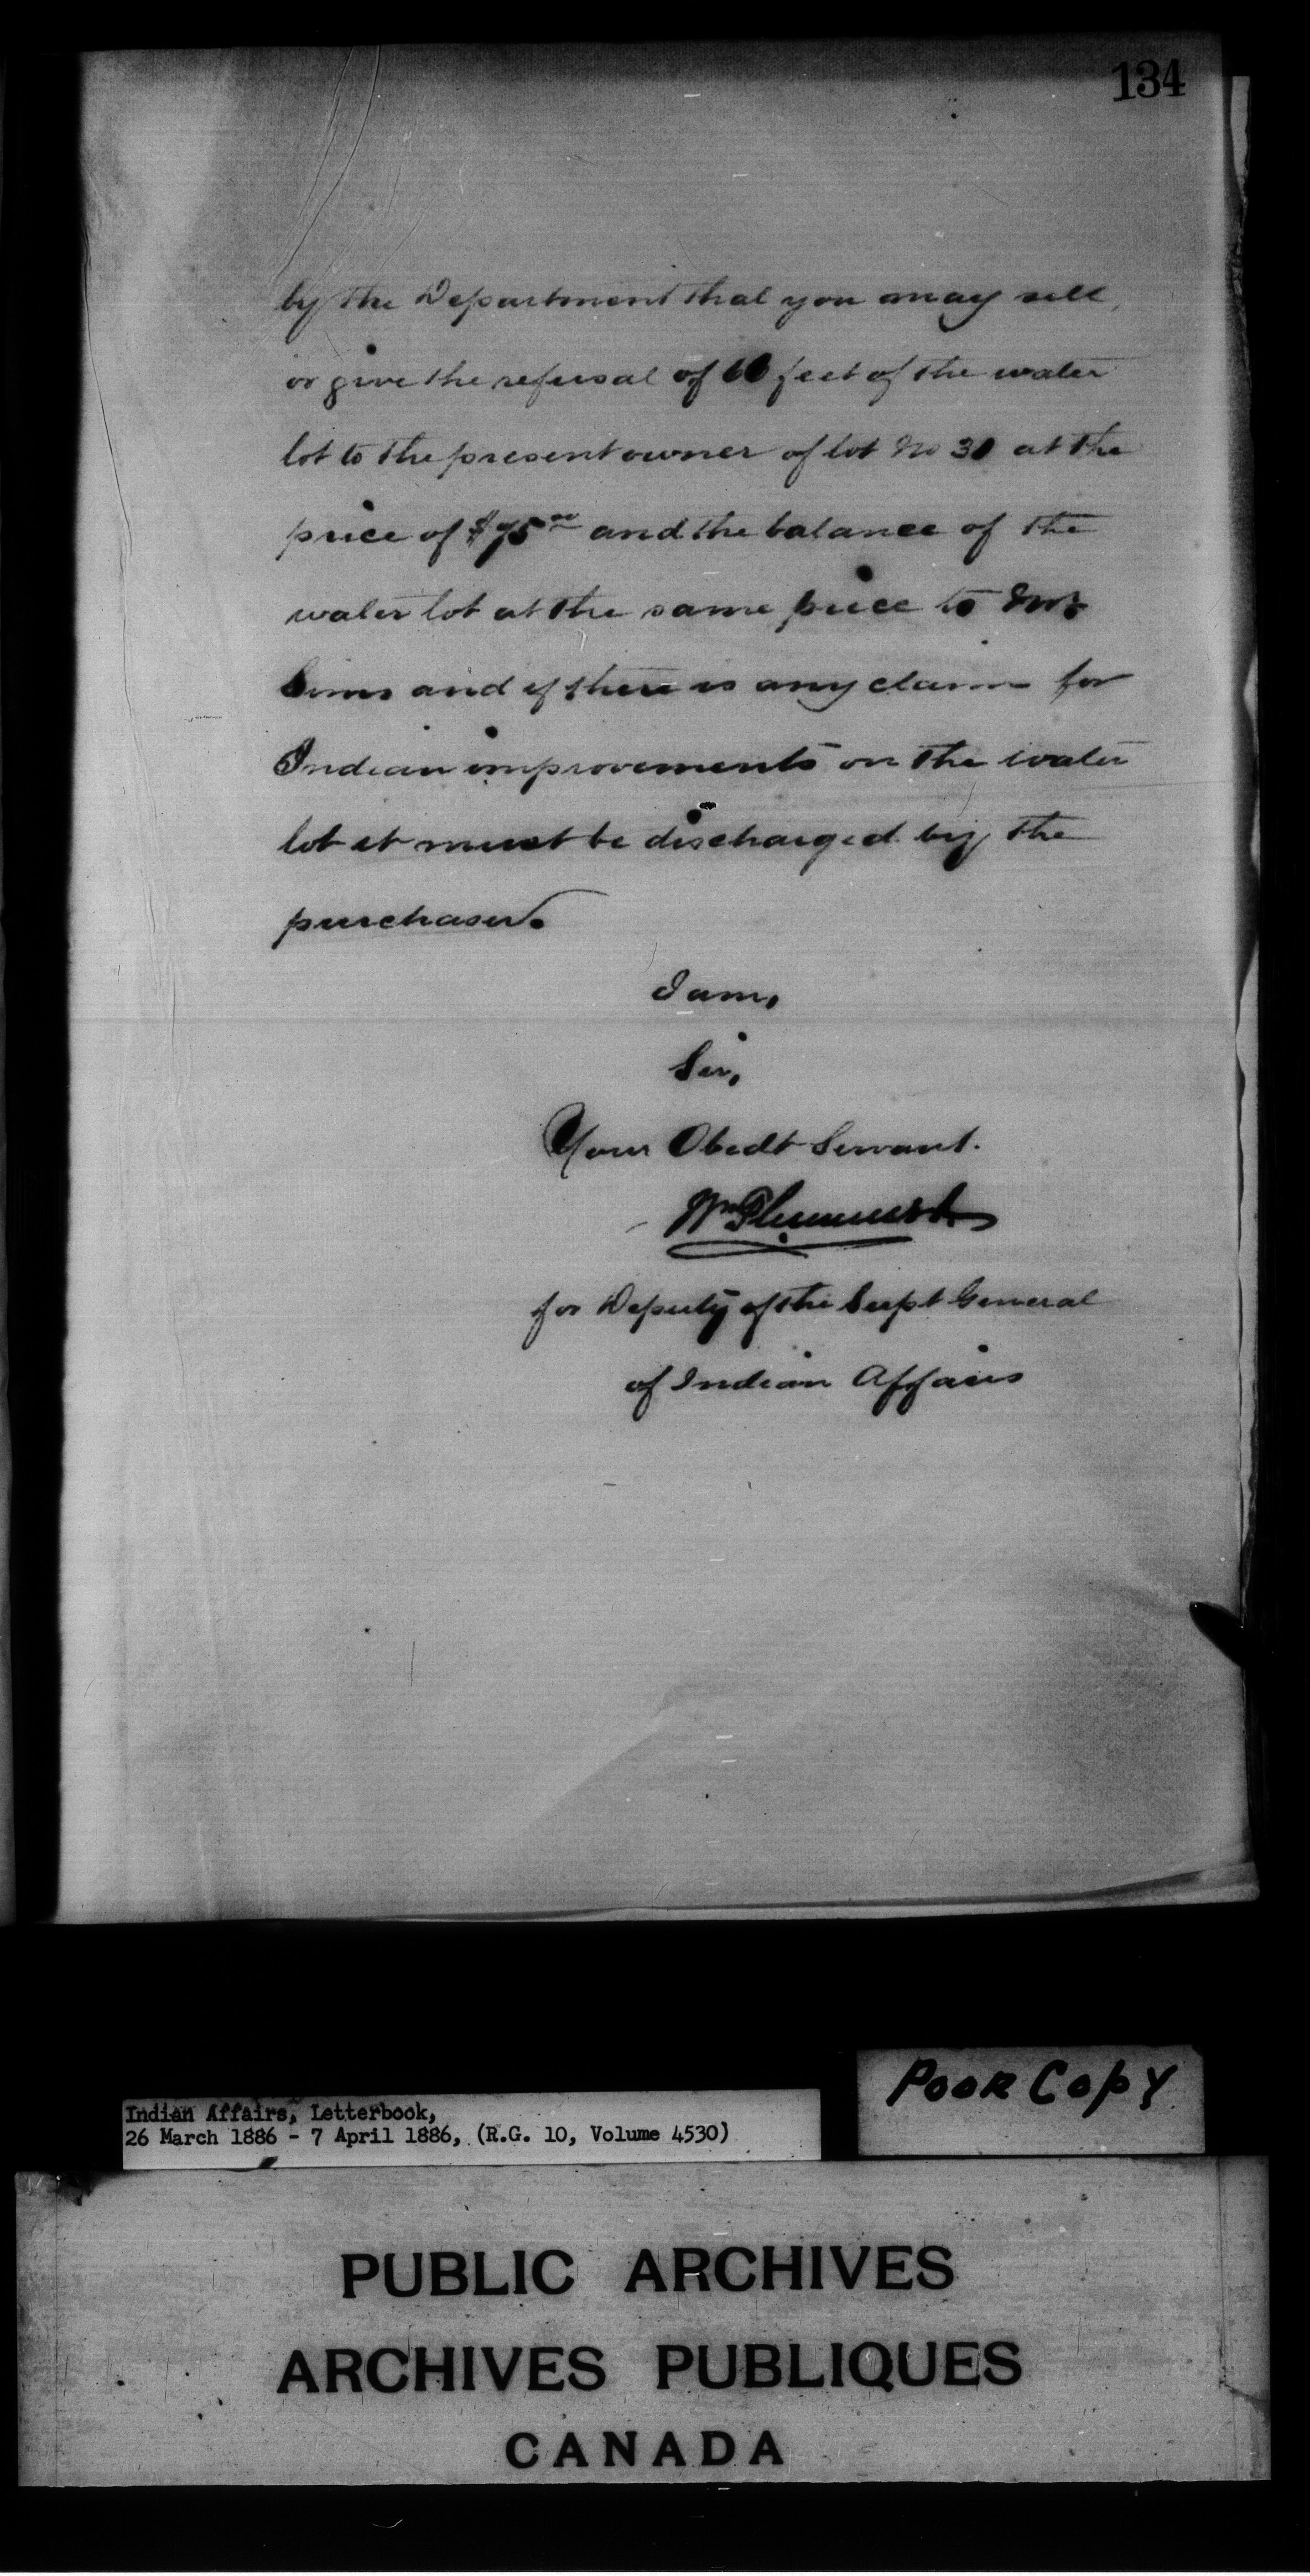 134
by the Department that you may sell,
or give the refusal of feet of the water
lot to the present owner of lot No 30 at the
price of $75 00 and the balance of the
water lot at the same price to Mr
Sims and if there is any claim for
Indian improvements on the water
lot it must be discharged by the
purchaser.
I am,
Sir,
Your Obedt Servant.
Wm Plummer
for Deputy of the Supt General
of Indian Affairs
Poor Copy
Indian Affairs, Letterbook,
26 March 1886 - 7 April 1886, (R.G. 10, Volume 4530)
PUBLIC ARCHIVES
ARCHIVES PUBLIQUES
CANADA